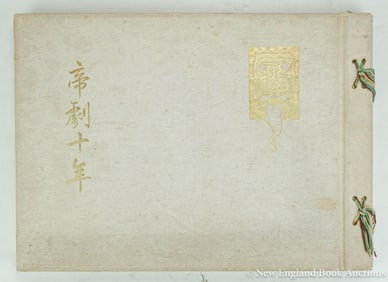 帝劇十年
© New England Book Auctions